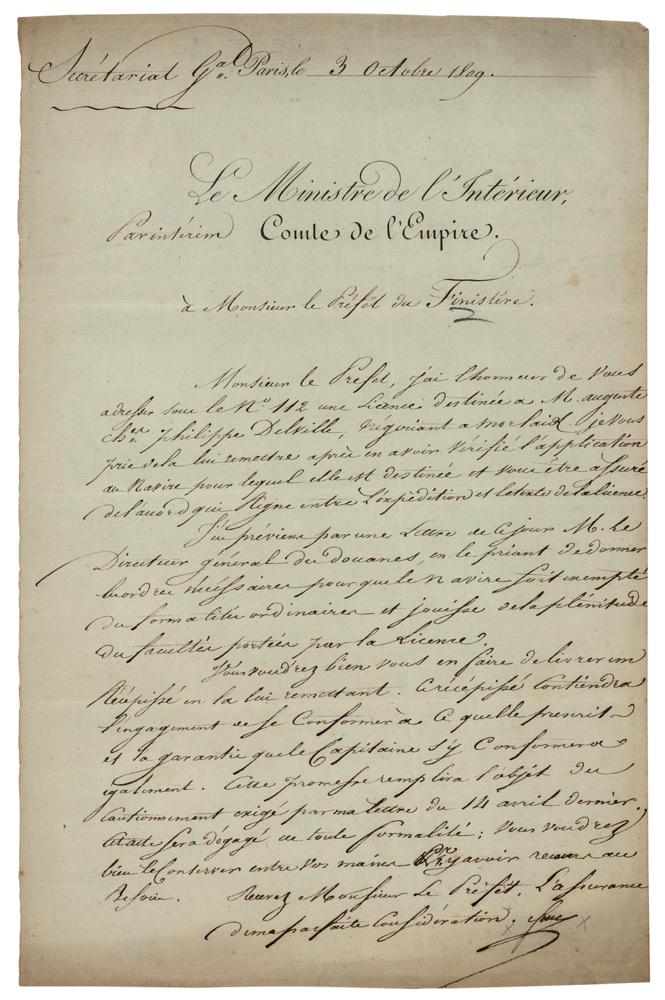 Secrétariat Gal. Paris, le 3 Octobre 1809.
Le Ministre de l'Intérieur,
Par intérim Comte de l'Empire.
à Monsieur le Préfet du Finistère.
Monsieur le Préfet, j'ai l'honneur de vous
adresser sous le No. 112 une Licence destinée a M. auguste
cher. philippe Delville, négociant a morlaix. je vous
prie de la lui remettre après en avoir vérifié l'application
au Navire pour lequel elle est destinée et vous être assuré
de l'accord qui Règne entre L'expédition et le texte de la licence.
J'en préviens par une Lettre de ce jour M. Le
Directeur général des douanes, en le priant de donner
les ordres nécessaires pour que le navire soit exempté
des formalités ordinaires et jouisse de la plénitude
des facultés portées par la Licence.
Vous voudrez bien vous en faire délivrer un
Récépissé en la lui remettant. Ce récépissé contiendra
l'engagement de se Conformer à Ce qu'elle prescrit
et la garantie que le Capitaine s'y Conformera
également. Cette promesse remplira l'objet du
Cautionnement exigé par ma lettre du 14 avril dernier.
Cet acte sera dégagé de toute formalité; vous voudrez
bien le Conserver entre vos mains Pr. y avoir recours au
Besoin. Recevez Monsieur Le Préfet, L'assurance
de ma parfaite Considération.